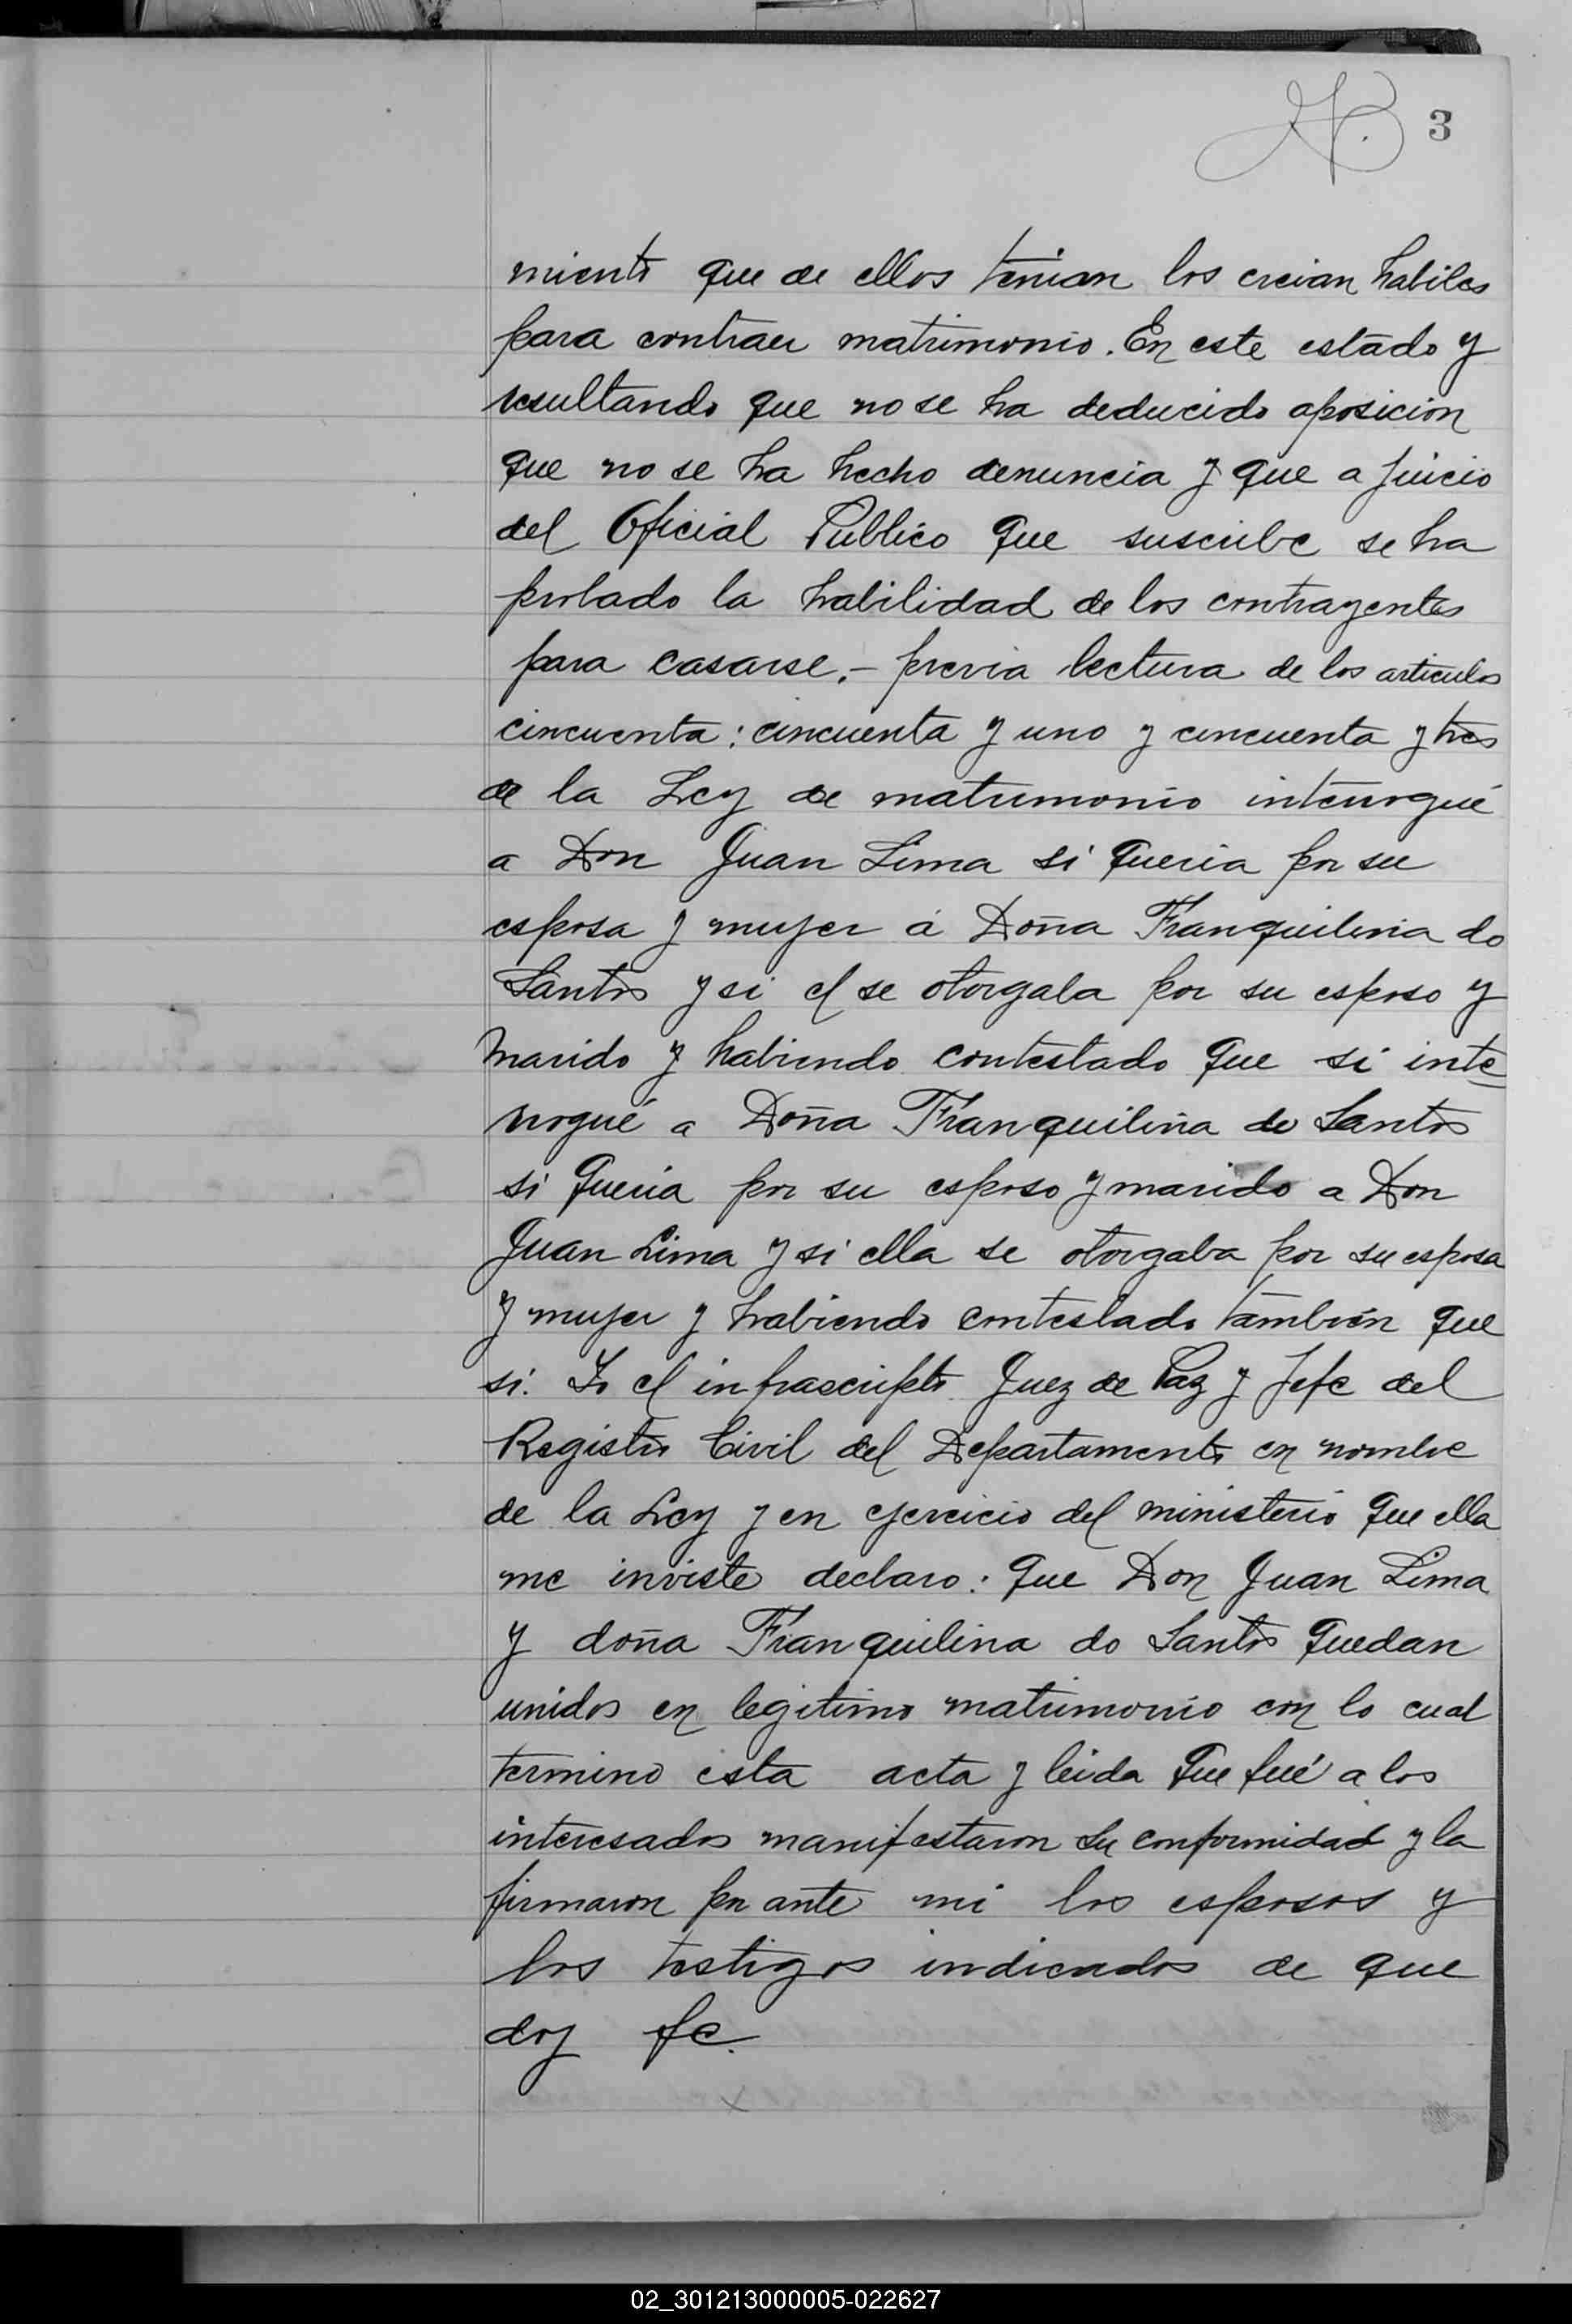 3
miento que de ellos tenian los creian habiles
para contraer matrimonio. En este estado y
resultando que no se ha deducido oposicion
que no se ha hecho denuncia y que a juicio
del Oficial Publico que suscribe se ha
probado la habilidad de los contrayentes
para casarse.- previa lectura de los articulos
cincuenta: cincuenta y uno y cincuenta y tres
de la Ley de matrimonio interrogué
a Don Juan Lima si queria por su
esposa y mujer á Doña Tranquilina do
Santos y si el se otorgaba por su esposo y
marido y habiendo contestado que si inte
rrogué a Doña Tranquilina do Santos
si queria por su esposo y marido a Don
Juan Lima y si ella se otorgaba por su esposa
y mujer y habiendo contestado también que
si. Yo el infrascripto Juez de Paz y Jefe del
Registro Civil del Departamento en nombre
de la Ley y en ejercicio del ministerio que ella
me inviste declaro: que Don Juan Lima
y doña Tranquilina do Santos quedan
unidos en legitimo matrimonio con lo cual
termino esta acta y leida que fué a los
interesados manifestaron su conformidad y la
firmaron por ante mi los esposos y
los testigos indicados de que
doy fe.
02_301213000005-022627